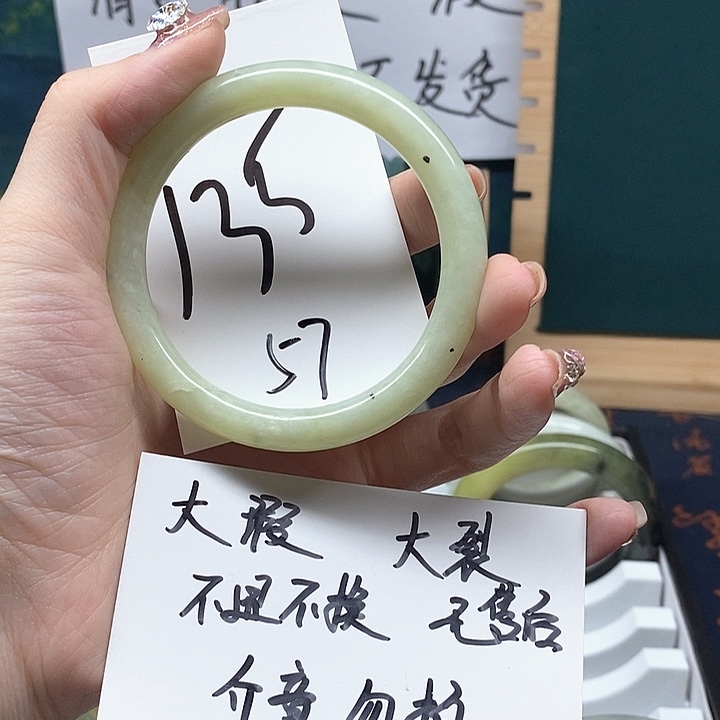 发货
135
57
大瑕 大裂
不退不换 无售后
介意勿拍